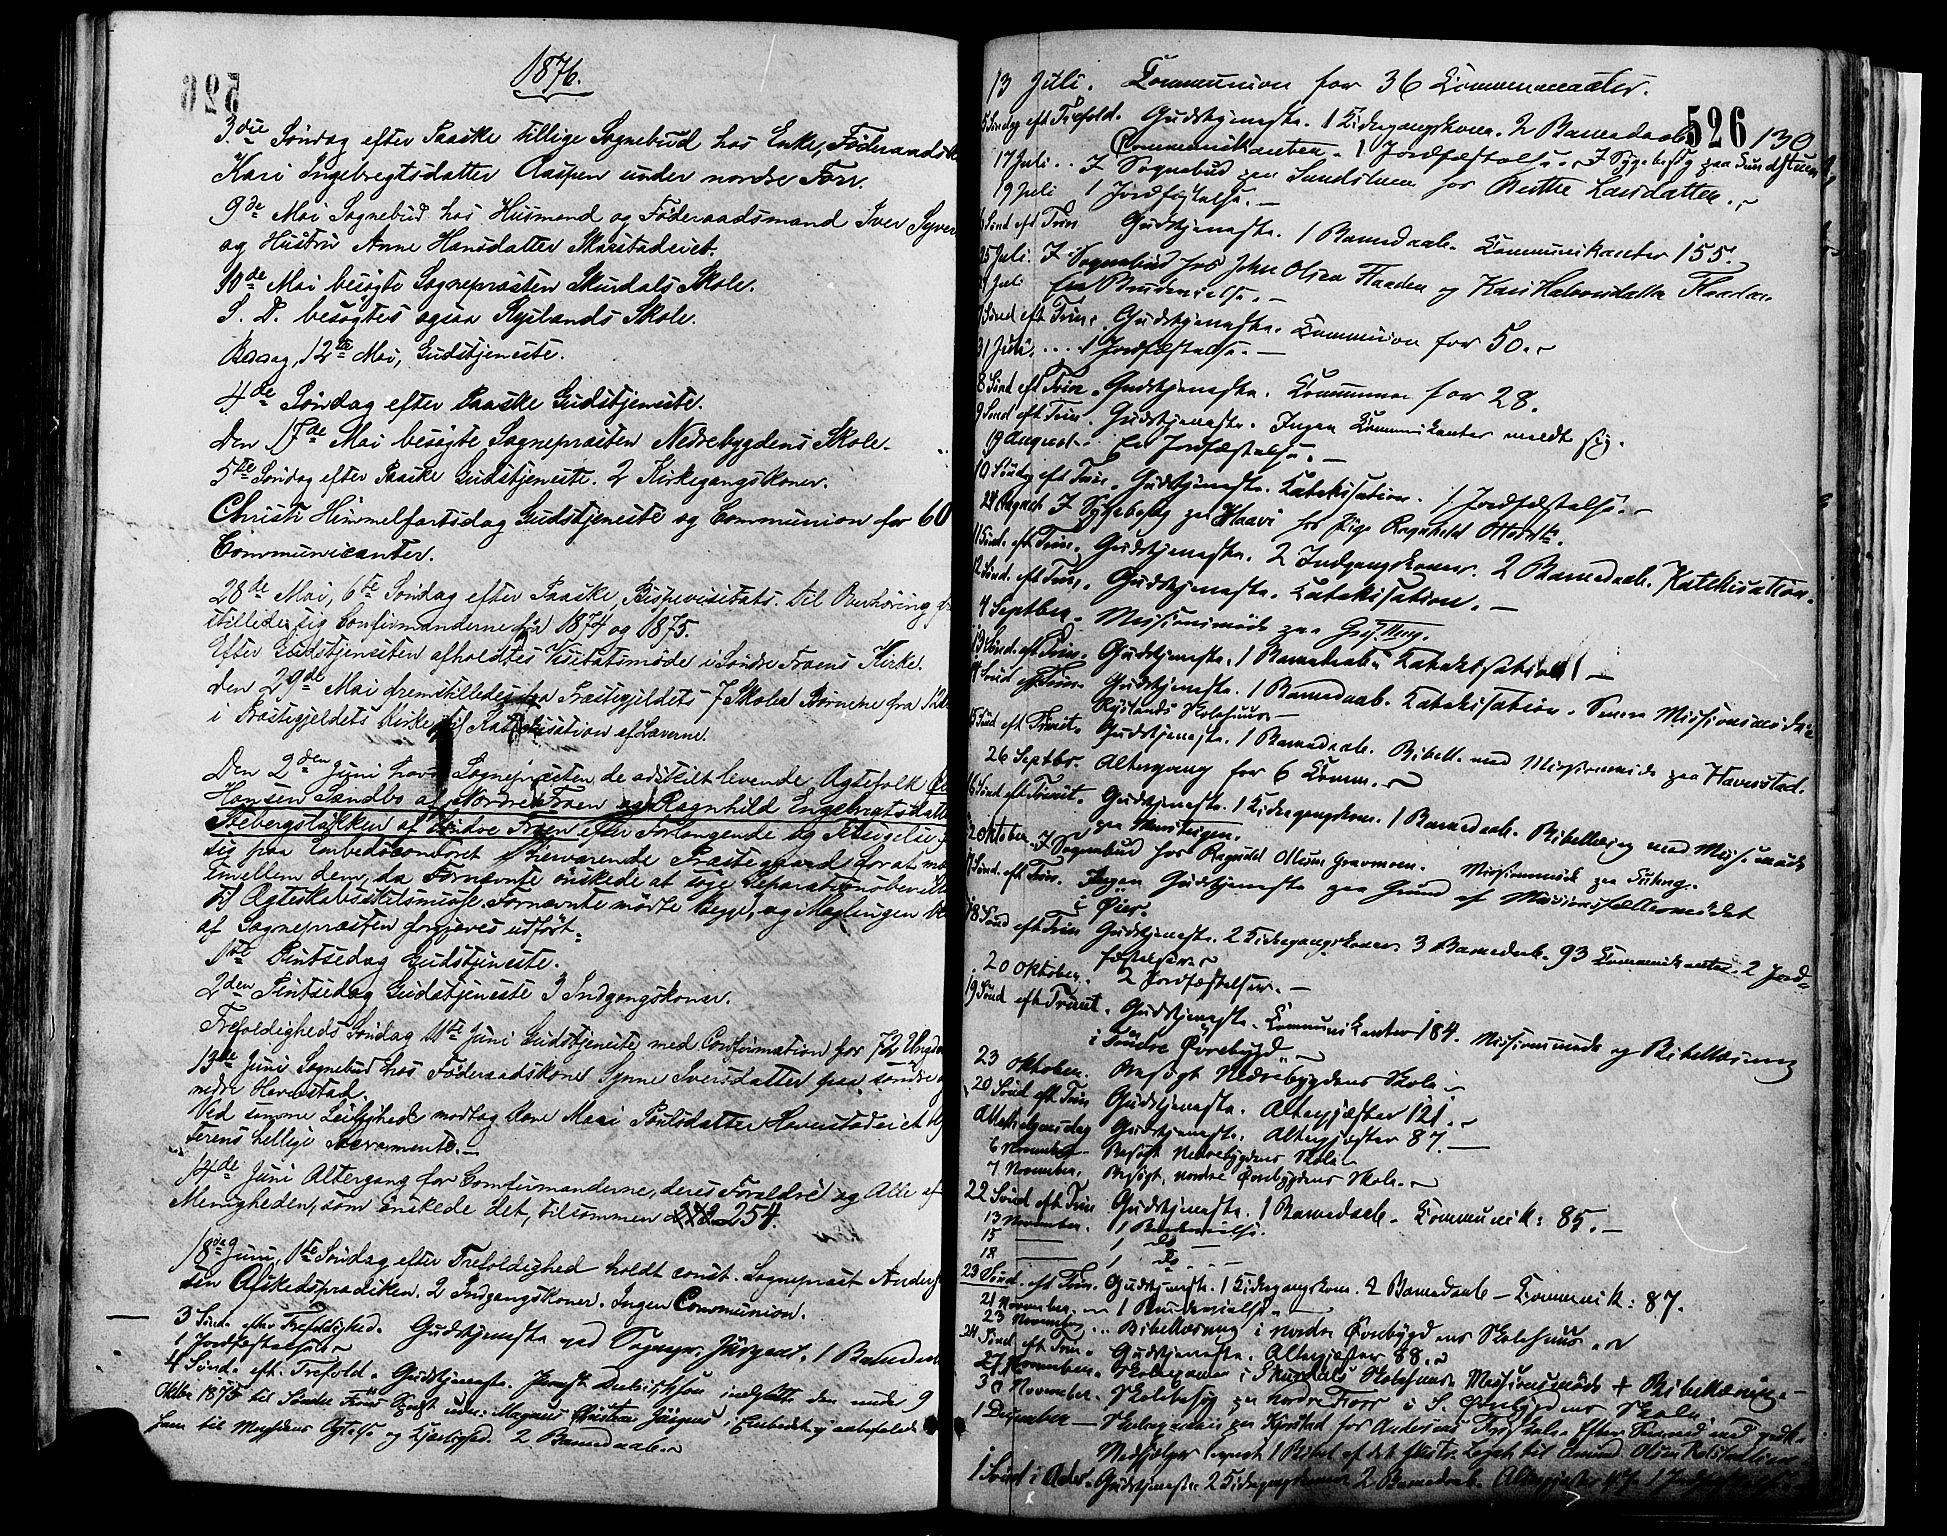 1876.
3die Søndag efter Paaske tillige Sognebud hos Enke, Føderaadsk
Kari Ingebregtsdatter Aaspen under nordre Forr.
9de Mai Sognebud hos Husmand og Føderaadsmand Iver Syver
og Hustru Anne Hansdatter
10de Mai besøgte Sognepræsten Skurdals Skole.
S. D. besøgtes ogsaa Ryslands Skole.
Bedag, 12te Mai, Gudstjeneste.
4de Søndag efter Paaske Gudstjeneste.
Den 17de Mai besøgte Sognepræsten Nedrebygdens Skole.
5te Søndag efter Paaske Gudstjeneste. 2 Kirkegangskoner.
Christi Himmelfartsdag Gudstjeneste og Communion for 60
Communicanter.
28de Mai, 6te Søndag efter Paaske, Bispevisitats. Til Overhøring
stillede sig Confirmanderne for 1874 og 1875.
Efter Gudstjenesten afholdtes Visitatsmøde i Søndre Froens Kirke.
Den 29de Mai fremstilledes fra Præstegjeldets 7 Skoler Børnene fra 12
i Præstegjeldets Kirke til Katekisation af Lærerne.
Den 2den Juni havde Sognepræsten de adskilt levende Ægtefolk
Hansen Sandbo af Nordre Froen og Ragnhild Engebregtsdatter
af Søndre Froen efter Forlangende og
sig paa Embedscontoret Præstegaard for at
imellem dem, da Fornævnte ønskede at søge Separationsbevilling
Fornævnte mødte begge, og Mæglingen
af Sognepræsten forgjæves udført.
1ste Pintsedag Gudstjeneste.
2den Pintsedag Gudstjeneste 3 Indgangskoner.
Trefoldigheds Søndag 11te Juni Gudstjeneste med Confirmation for 72 Ungdom
13de Juni Sognebud hos Føderaadskone Synne Iversdatter paa søndre
nedre Havestad.
Ved samme Leilighed modtog Kone Mari Poulsdatter
terens hellige Sacramente.
14de Juni Altergang for Confirmanderne, deres Forældre og Alle af
Menigheden, som ønskede det, tilsammen 254.
18de Juni, 1ste Søndag efter Trefoldighed holdt const. Sognepræst Anders
sen Afskedsprædiken. 2 Indgangskoner. Ingen Communion.
3 Sønd. efter Trefoldighed. Gudstjeneste ved Sognepr. Jürgens. 1 Barnedaab
1 Jordfæstelse
4 Sønd. eft. Trefold. Gudstjeneste. Provst indsatte den under 9
Oktbr 1875 til Søndre Frons Sognepræst udn. Magnus Christian Jürgens i Embedet og anbefalede
ham til Menighedens Agtelse og Kjærlighed. 2 Barnedaab.
526
130
13 Juli. Communion for 36 Kommunikanter.
5 Søndag eft Trefold. Gudstjeneste. 1 Kirkegangskone. 2 Barnedaab
Communikanter. 1 Jordfæstelse. I Sygebesøg paa Sundstuen
17 Juli .. I Sognebud paa Sundstuen hos Berthe Larsdatter.
19 Juli 1 Jordfæstelse.
6 Sønd eft Trin Gudstjeneste. 1 Barnedaab. Communikanter 155.
25 Juli. I Sognebud hos John Olsen Flaaden og Kari Halvorsdatter Flaaden
Juli En Brudevielse.
7 Sønd eft Trin. Gudstjeneste. Communion for 50.
31 Juli. ... 1 Jordfæstelse.
8 Sønd eft Trin. Gudstjeneste. Communion for 28.
9 Sønd eft Trin. Gudstjeneste. Ingen Communikanter meldt sig.
19 August. En Jordfæstelse.
10 Søndag eft Trin. Gudstjeneste. Katekisation. 1 Jordfæstelse.
24 August I Sygebesøg paa Haavi hos Pige Ragnhild
11 Sønd. eft Trin. Gudstjeneste. 2 Indgangskoner. 2 Barnedaab. Katekisation.
12 Sønd. eft Trin. Gudstjeneste. Katekisation.
4 Septber. Missionsmøde paa
13 Sønd. eft Trin. Gudstjeneste. 1 Barnedaab. Katekisation
14 Sønd eft Trin. Gudstjeneste. 1 Barnedaab. Katekisation. Senere Missionsmøde i
Ryslands Skolehuus.
15 Sønd eft Trinit. Gudstjeneste. 1 Barnedaab. Bibell. med Missionsmøde paa Havestad.
26 Septbr. Altergang for 6 Comm.
16 Sønd eft Trinit. Gudstjeneste. 1 Kirkegangskone. 1 Barnedaab. Bibellæsning med Missionsmøde
paa
2 Oktober I Sognebud hos Ragnhild Missionsmøde paa
17 Sønd. eft Trin. Ingen Gudstjeneste paa Grund af Missionsfællesmødet
i Øier.
18 Sønd eft Trin Gudstjeneste. 2 Kirkegangskoner 3 Barnedaab. 93 Communikanter. 2 Jord-
fæstelser.
20 Oktober. 2 Jordfæstelser.
19 Sønd eft Trinit. Gudstjeneste. Communikanter 184. Missionsmøde og Bibellæsning
i Søndre Øvrebygd.
23 Oktober. Besøgt Nedrebygdens Skole
20 Sønd eft Trin Gudstjeneste. Altergjæster 121.
Allehelgensdag Gudstjeneste. Altergjæster 87.
6 November Besøgt Nedrebygdens Skole
7 November. Besøgt nordre Øvrebygdens Skole.
22 Sønd eft Trin Gudstjeneste. 1 Barnedaab. Communik: 85.
13 November. 1 Brudevielse.
15 — 1 do
18 — 1 do
23 Sønd. eft Trin. Gudstjeneste. 1 Kirkegangskone. 2 Barnedaab — Communik: 87.
21 November. 1 Brudevielse.
23 November. .. Bibellæsning i nordre Øvrebygdens Skolehuus.
24 Sønd eft Trin. Gudstjeneste. Altergjæster 88.
27 November. i Skurdals Skolehuus Missionsmøde + Bibellæsning
30 November. Skolebesøg paa nordre Forr i S. Øvrebygdens Skole.
1 December — paa Kjørstad for
1 Bibel af det
1 Sønd i Advt. Gudstjeneste 2 Kirkegangskoner 2 Barnedaab. Altergjæster 47. 1 Jordfæstelse